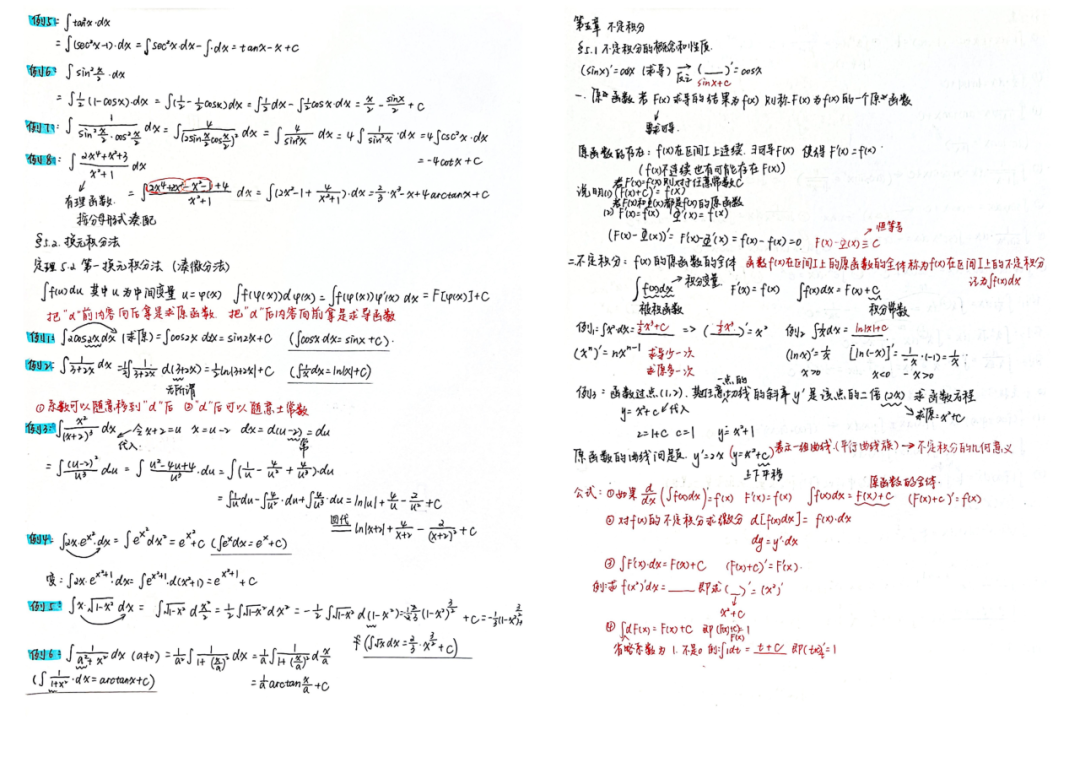 例15: ∫tan²x·dx
= ∫(sec²x-1)·dx = ∫sec²x·dx - ∫·dx = tanx - x + C
例16: ∫sin²x/2·dx
= ∫1/2(1-cosx)·dx = ∫(1/2-1/2cosx)dx = ∫1/2dx - ∫1/2cosx·dx = x/2 - sinx/2 + C
例17: ∫1/(sin²x/2·cos²x/2) dx = ∫4/(2sinx/2cosx/2)² dx = ∫4/sin²x dx = 4∫1/sin²x·dx = 4∫csc²x·dx
= -4cotx + C
例18: ∫(2x⁴+x²+3)/(x²+1) dx
有理函数 = ∫(2x⁴+2x²-x²-1+4)/(x²+1) dx = ∫(2x²-1+4/(x²+1))·dx = 2/3·x³-x+4arctanx+C
拆分母形式凑配
§5.2. 换元积分法
定理5.2 第一换元积分法 (凑微分法)
∫f(u)du 其中u为中间变量 u=φ(x) ∫f(φ(x))dφ(x) = ∫f(φ(x))φ'(x)dx = F[φ(x)]+C
把"d"前内容向后拿是求原函数 把"d"后内容向前拿是求导函数
例1: ∫2cos2x dx (求原) = ∫cos2x d2x = sin2x+C (∫cosx dx = sinx+C)
例2: ∫1/(3+2x) dx = 1/2∫1/(3+2x) d(3+2x) = 1/2ln|3+2x|+C (∫1/x dx = ln|x|+C)
无所谓
①系数可以随意移到"d"后 ②"d"后可以随意±常数
例3: ∫x²/(x+2)³ dx 令x+2=u x=u-2 dx=d(u-2)=du
代入 常
= ∫(u-2)²/u³ du = ∫(u²-4u+4)/u³·du = ∫(1/u-4/u²+4/u³)·du
= ∫1/u du - ∫4/u²·du + ∫4/u³·du = ln|u|+4/u-2/u²+C
回代 ln|x+2|+4/(x+2)-2/(x+2)²+C
例4: ∫2x·e^x²·dx = ∫e^x² dx² = e^x²+C (∫e^x dx = e^x+C)
变: ∫2x·e^(x²+1)·dx = ∫e^(x²+1)·d(x²+1) = e^(x²+1)+C
例5: ∫x·√(1-x²) dx = ∫√(1-x²) d x²/2 = 1/2∫√(1-x²) dx² = -1/2∫√(1-x²) d(1-x²)
(∫√x dx = 2/3·x^(3/2)+C)
例6: ∫1/(a²+x²) dx (a≠0) = 1/a²∫1/(1+(x/a)²) dx = 1/a∫1/(1+(x/a)²) d x/a
(∫1/(1+x²)·dx = arctanx+C) = 1/a arctan x/a + C
第五章 不定积分
§5.1 不定积分的概念和性质.
(sinx)'=cosx (求导) ⇄ (__)'=cosx
sinx+C
一.原函数 若F(x)求导的结果为f(x) 则称F(x)为f(x)的一个原函数
原函数的存在: f(x)在区间I上连续. ∃可导F(x) 使得F'(x)=f(x)·
(f(x)不连续也有可能存在F(x))
若F'(x)=f(x)则对任意常数C
说明(1) (F(x)+C)'=f(x)
若F(x)和Φ(x)都是f(x)的原函数
(2) F'(x)=f(x) Φ'(x)=f(x) 恒等号
(F(x)-Φ(x))' = F'(x)-Φ'(x) = f(x)-f(x)=0 F(x)-Φ(x)≡C
二.不定积分: f(x)的原函数的全体 函数f(x)在区间I上的原函数的全体称为f(x)在区间I上的不定积分
记为∫f(x)dx
∫f(x)dx 积分变量 F'(x)=f(x) ∫f(x)dx=F(x)+C
被积函数 积分常数
例1: ∫x²dx = 1/3x³+C => (1/3x³)'=x² 例2 ∫1/x dx = ln|x|+C
(xⁿ)'=nxⁿ⁻¹ 求导少一次 (lnx)'=1/x [ln(-x)]'=1/-x·(-1)=1/x
求原多一次 x>0 x<0 -x>0
一点的
例3: 函数过点(1,2). 其任意切线的斜率y'是该点的二倍(2x) 求函数方程
y=x²+C 代入 求原=x²+C
2=1+C C=1 y=x²+1
原函数的曲线问题 y'=2x (y=x²+C) 表示一组曲线(平行曲线族) → 不定积分的几何意义
上下平移
原函数的全体.
公式: ①如果 d/dx(∫f(x)dx)'=f(x) F'(x)=f(x) ∫f(x)dx=F(x)+C (F(x)+C)'=f(x)
②对f(x)的不定积分求微分 d[∫f(x)dx]=f(x)·dx
dy=y'·dx
③∫F'(x)·dx=F(x)+C (F(x)+C)'=F'(x)·
例:求∫(x²)'dx=____ 即求(__)'=(x²)'
x²+C
④∫dF(x)=F(x)+C
省略系数为1.不是0 例:∫1dt=t+C 即(t+C)'=1